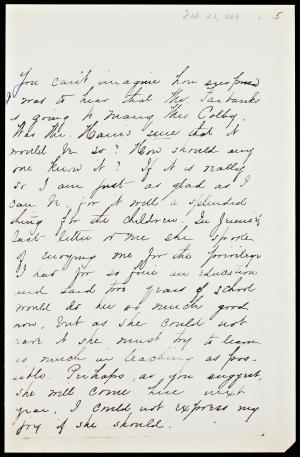 Feb. 23, 1869
5
You can't imagine how surprised
I was to hear that Mr. Fairbanks
is going to marry Miss Colby.
Was Mr. Hains sure that it
would be so? How should any
one know it? If it is really
so I am just as glad as I
can be, for it will a splendid
thing for the children. In
last letter to me she spoke
of envying me for the privilege
I had for so fine an education
and said two years of school
would do her so much good
now, but as she could not
have it she must try to learn
as much in teaching as pos-
sible. Perhaps, as you suggest,
she will come here next
year. I could not express my
joy if she should.